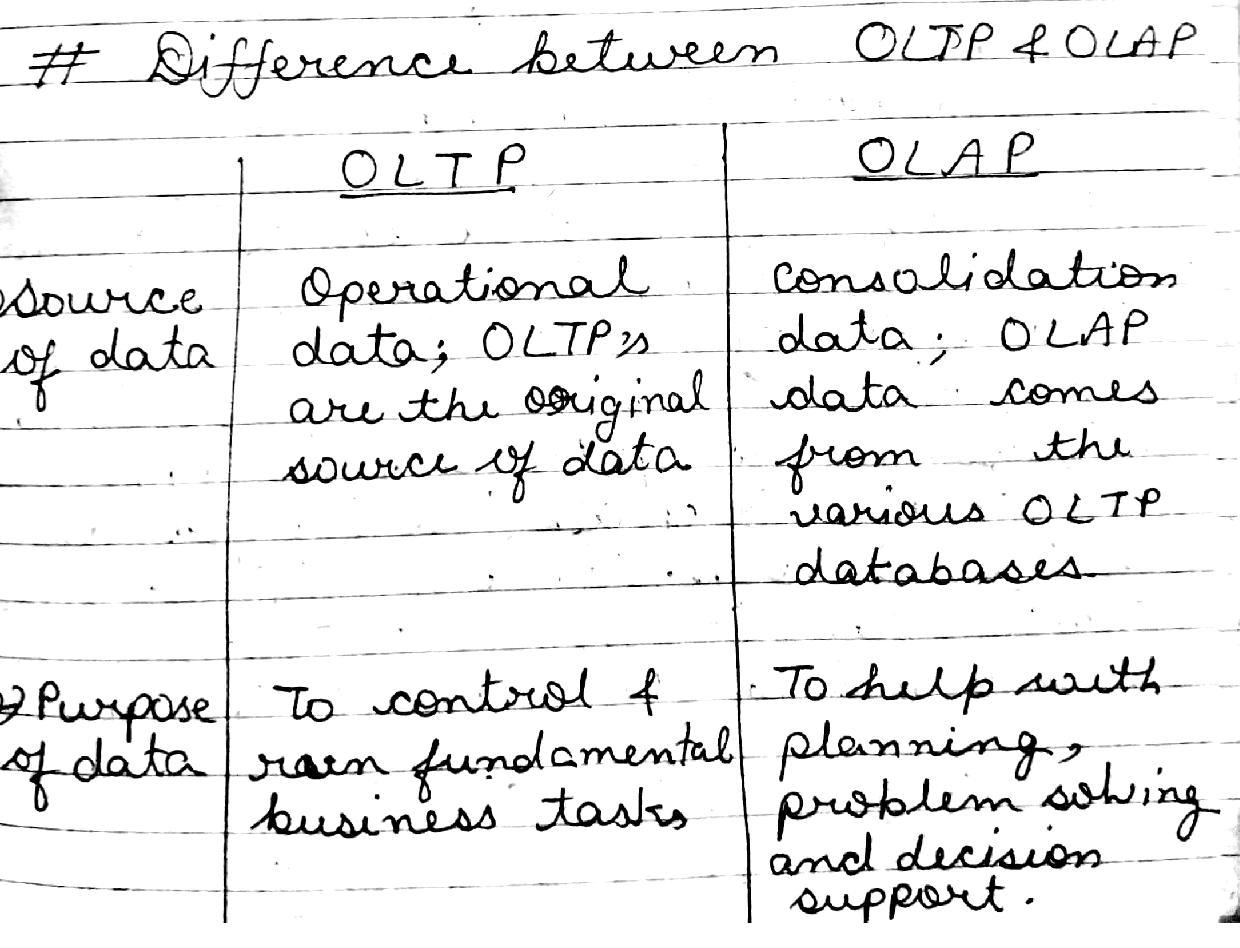 # Difference between OLTP & OLAP
OLTP
OLAP
source
of data
Operational
data; OLTPs
are the original
source of data
consolidation
data; OLAP
data comes
from the
various OLTP
databases
Purpose
of data
To control &
run fundamental
business tasks
To help with
planning,
problem solving
and decision
support.